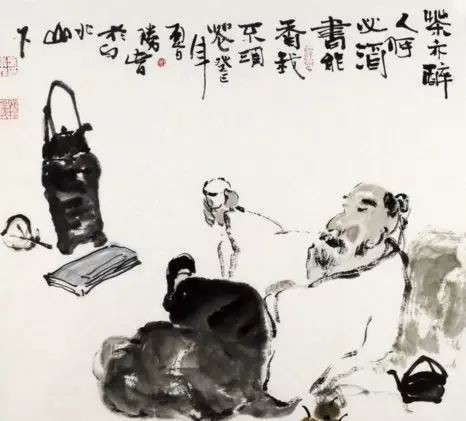 茶亦醉
人何
必酒
書能
香我
不須
花癸巳
年
夏
於
北
山
下